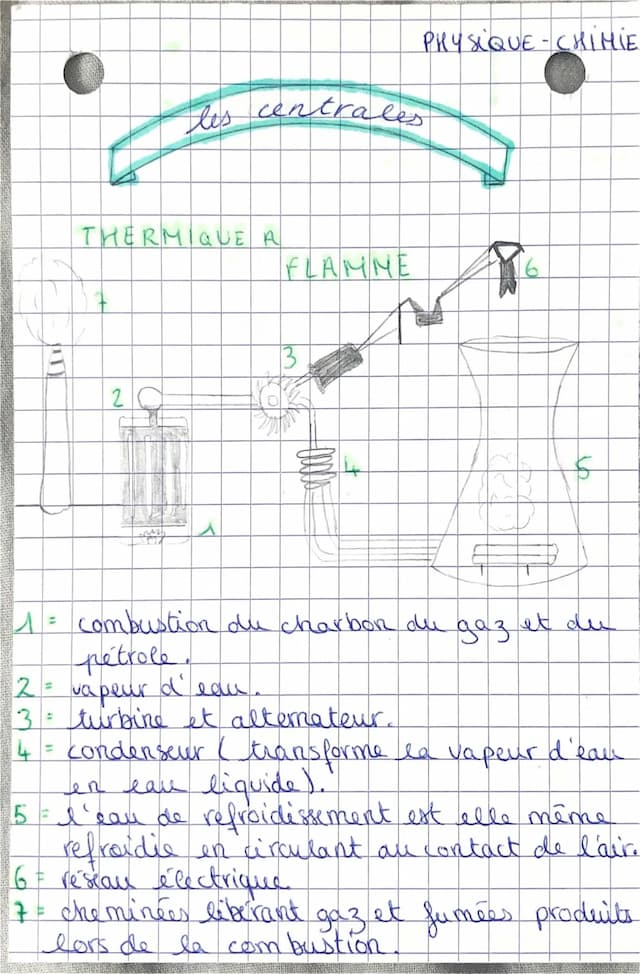 PHYSIQUE-CHIMIE
les centrales
THERMIQUE A
FLAMME
6
7
3
2
4
5
1
1 = combustion du charbon du gaz et du
pétrole.
2 = vapeur d'eau.
3 = turbine et alternateur.
4 = condenseur (transforme la vapeur d'eau
en eau liquide).
5 = l'eau de refroidissement est elle même
refroidie en circulant au contact de l'air.
6 = réseau électrique
7 = cheminées libérant gaz et fumées produits
lors de la combustion.